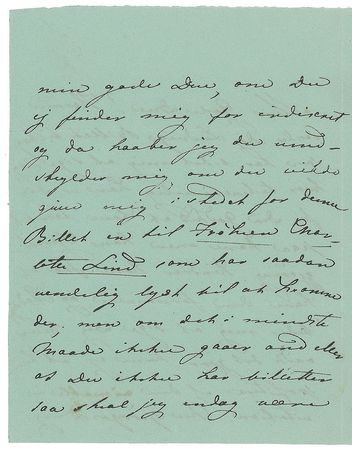 min gode Due, om Du
ej finder mig for indiscret
og da haaber jeg du und-
skylder mig, om du vilde
give mig i stedet for denne
Billet en til Frøken Char-
lotte Lind som har saadan
uendelig lyst til at komme
der, men om det i mindste
Maade ikke gaaer and eller
at Du ikke har billetter
saa skal jeg endog være